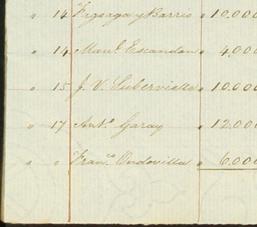 " 14 Fagoaga y Barrio " 10,000
" 14 Manl. Escandon " 4,000
" 15 J. V. Suberviella " 10,000
" 17 Anto. Garay " 12,000
" " Franco. Ondovilla " 6,000